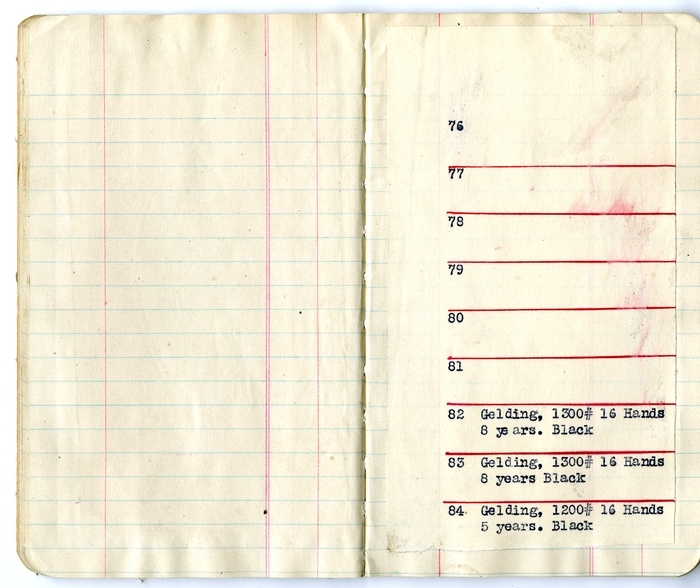 76
77
78
79
80
81
82 Gelding, 1300# 16 Hands
8 years. Black
83 Gelding, 1300# 16 Hands
8 years Black
84 Gelding, 1200# 16 Hands
5 years. Black